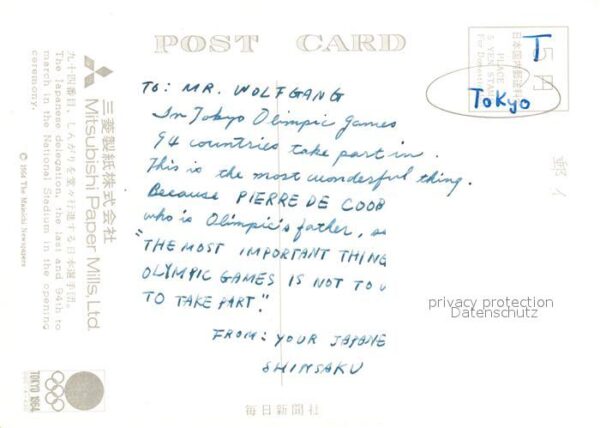 POST CARD
TO: MR. WOLFGANG
In Tokyo Olimpic Games
94 countries take part in.
This is the most wonderful thing.
Because PIERRE DE COOB
who is Olimpic's father, se
"THE MOST IMPORTANT THING
OLYMPIC GAMES IS NOT TO
TO TAKE PART."
FROM: YOUR JAPANE
SHINSAKU
T
Tokyo
5円
日本国内郵便料
PLACE
5 YEN STAM
For Domestic
privacy protection
Datenschutz
毎日新聞社
三菱製紙株式会社
Mitsubishi Paper Mills, Ltd.
九十四番目、しんがりを堂々行進する日本選手団。
The Japanese delegation, the last and 94th to
march in the National Stadium in the opening
ceremony.
© 1964 The Mainichi Newspapers
TOKYO 1964